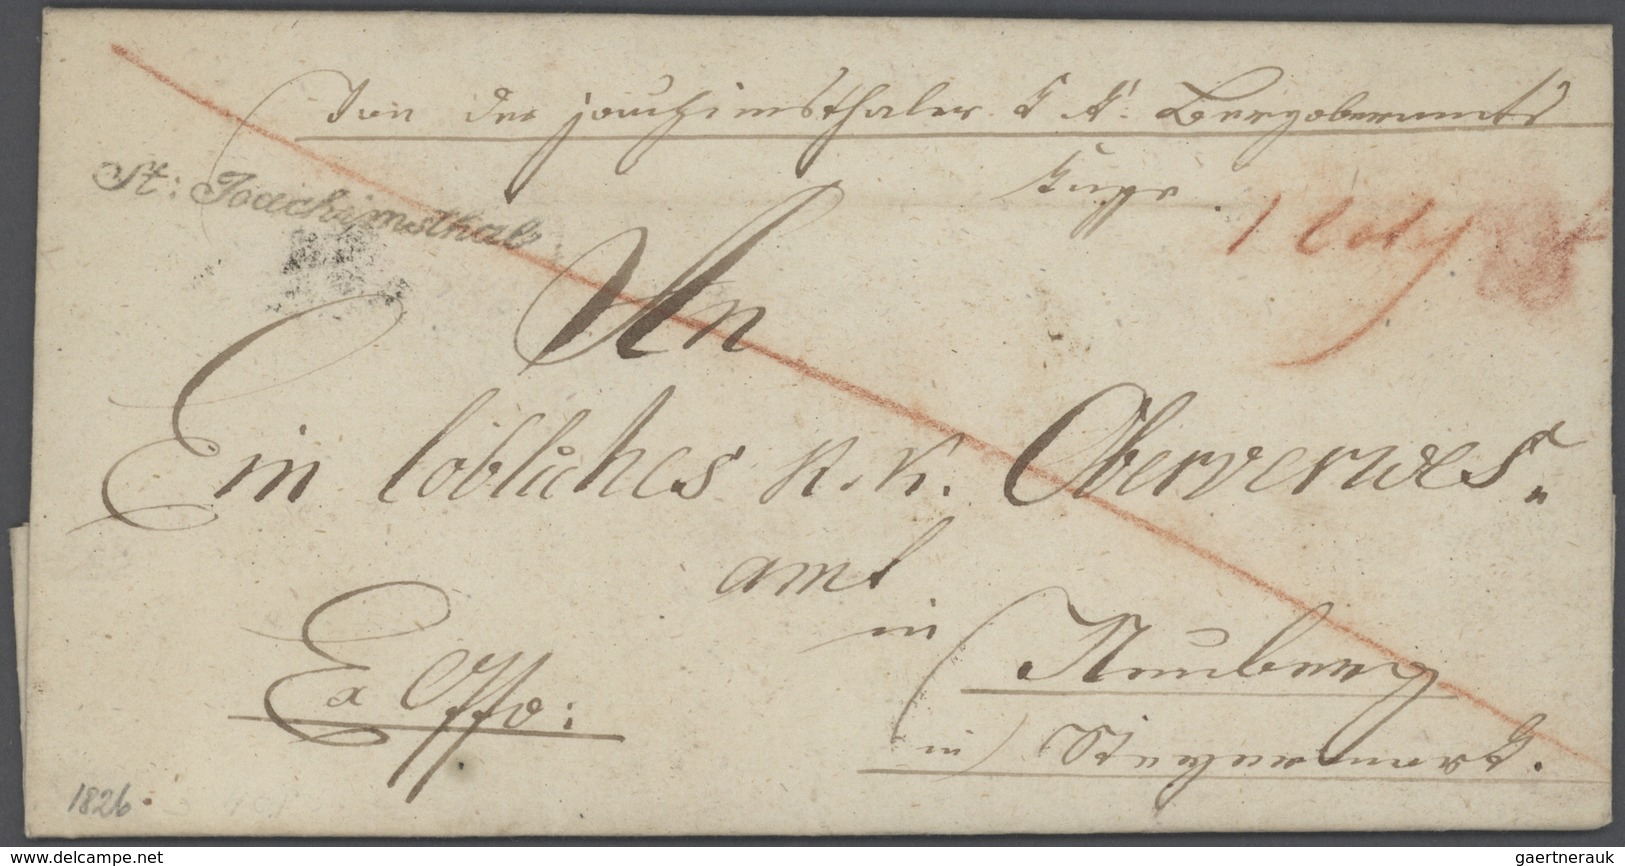 Von der joachimsthaler k. k. Bergoberamts
St: Joachimsthal.
1 loth
An
Ein löbliches K. K. Oberverwes=
amt
in Neuberg
Ex Offo:
in Steyermark.
1826
www.delcampe.net
gaertnerauk